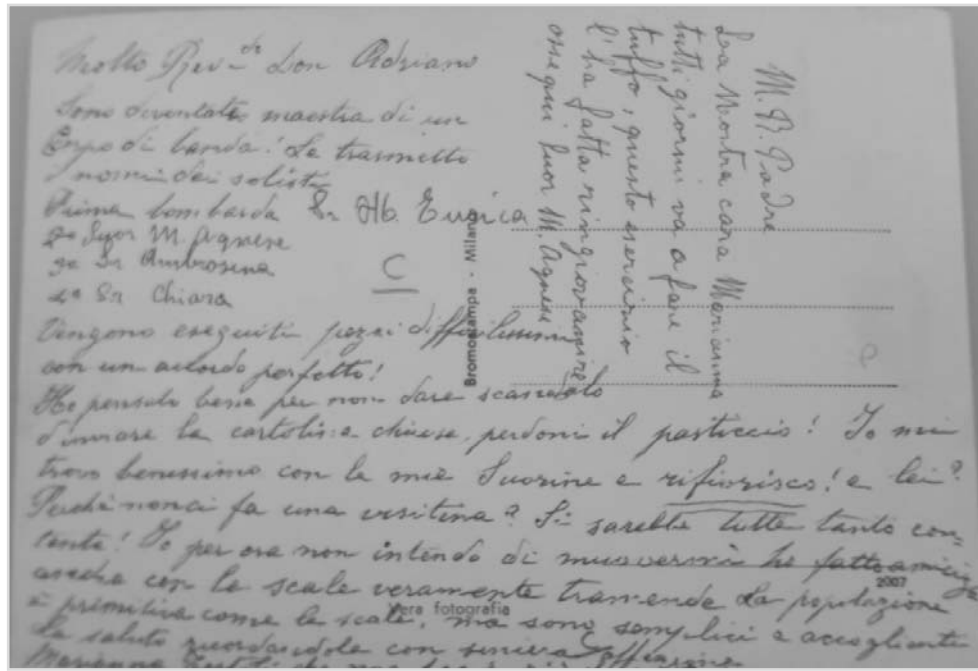 Molto Rev-do Don Adriano
Sono diventata maestra di un
Corpo di banda! Le trasmetto
i nomi dei solisti
Prima bombarda Sr Ab. Eugica
2a Suor M. Agnese
3a Sr Ambrosina
4a Sr Chiara
Vengono eseguiti pezzi difficilissimi
con un accordo perfetto!
Ho pensato bene per non dare scandalo
d'inviare la cartolina chiusa, perdoni il pasticcio! Io mi
trovo benissimo con le mie Suorine e rifiorisco! e lei?
Perché non ci fa una visitina? Si sarebbe tutte tanto con=
tente! Io per ora non intendo di muovermi ho fatto amicizia
anche con le scale veramente tremende La popolazione
è primitiva come le scale, ma sono semplici e accogliente
La saluto ricordandola con sincera affezione
Marianna
M. R. Padre
La Nostra cara Marianna
tutti giorni va a fare il
tuffo, questo esercizio
l'ha fatta ringiovanire
ossequi Suor M. Agnese
C
Bromostampa - Milano
C
2007
Vera fotografia